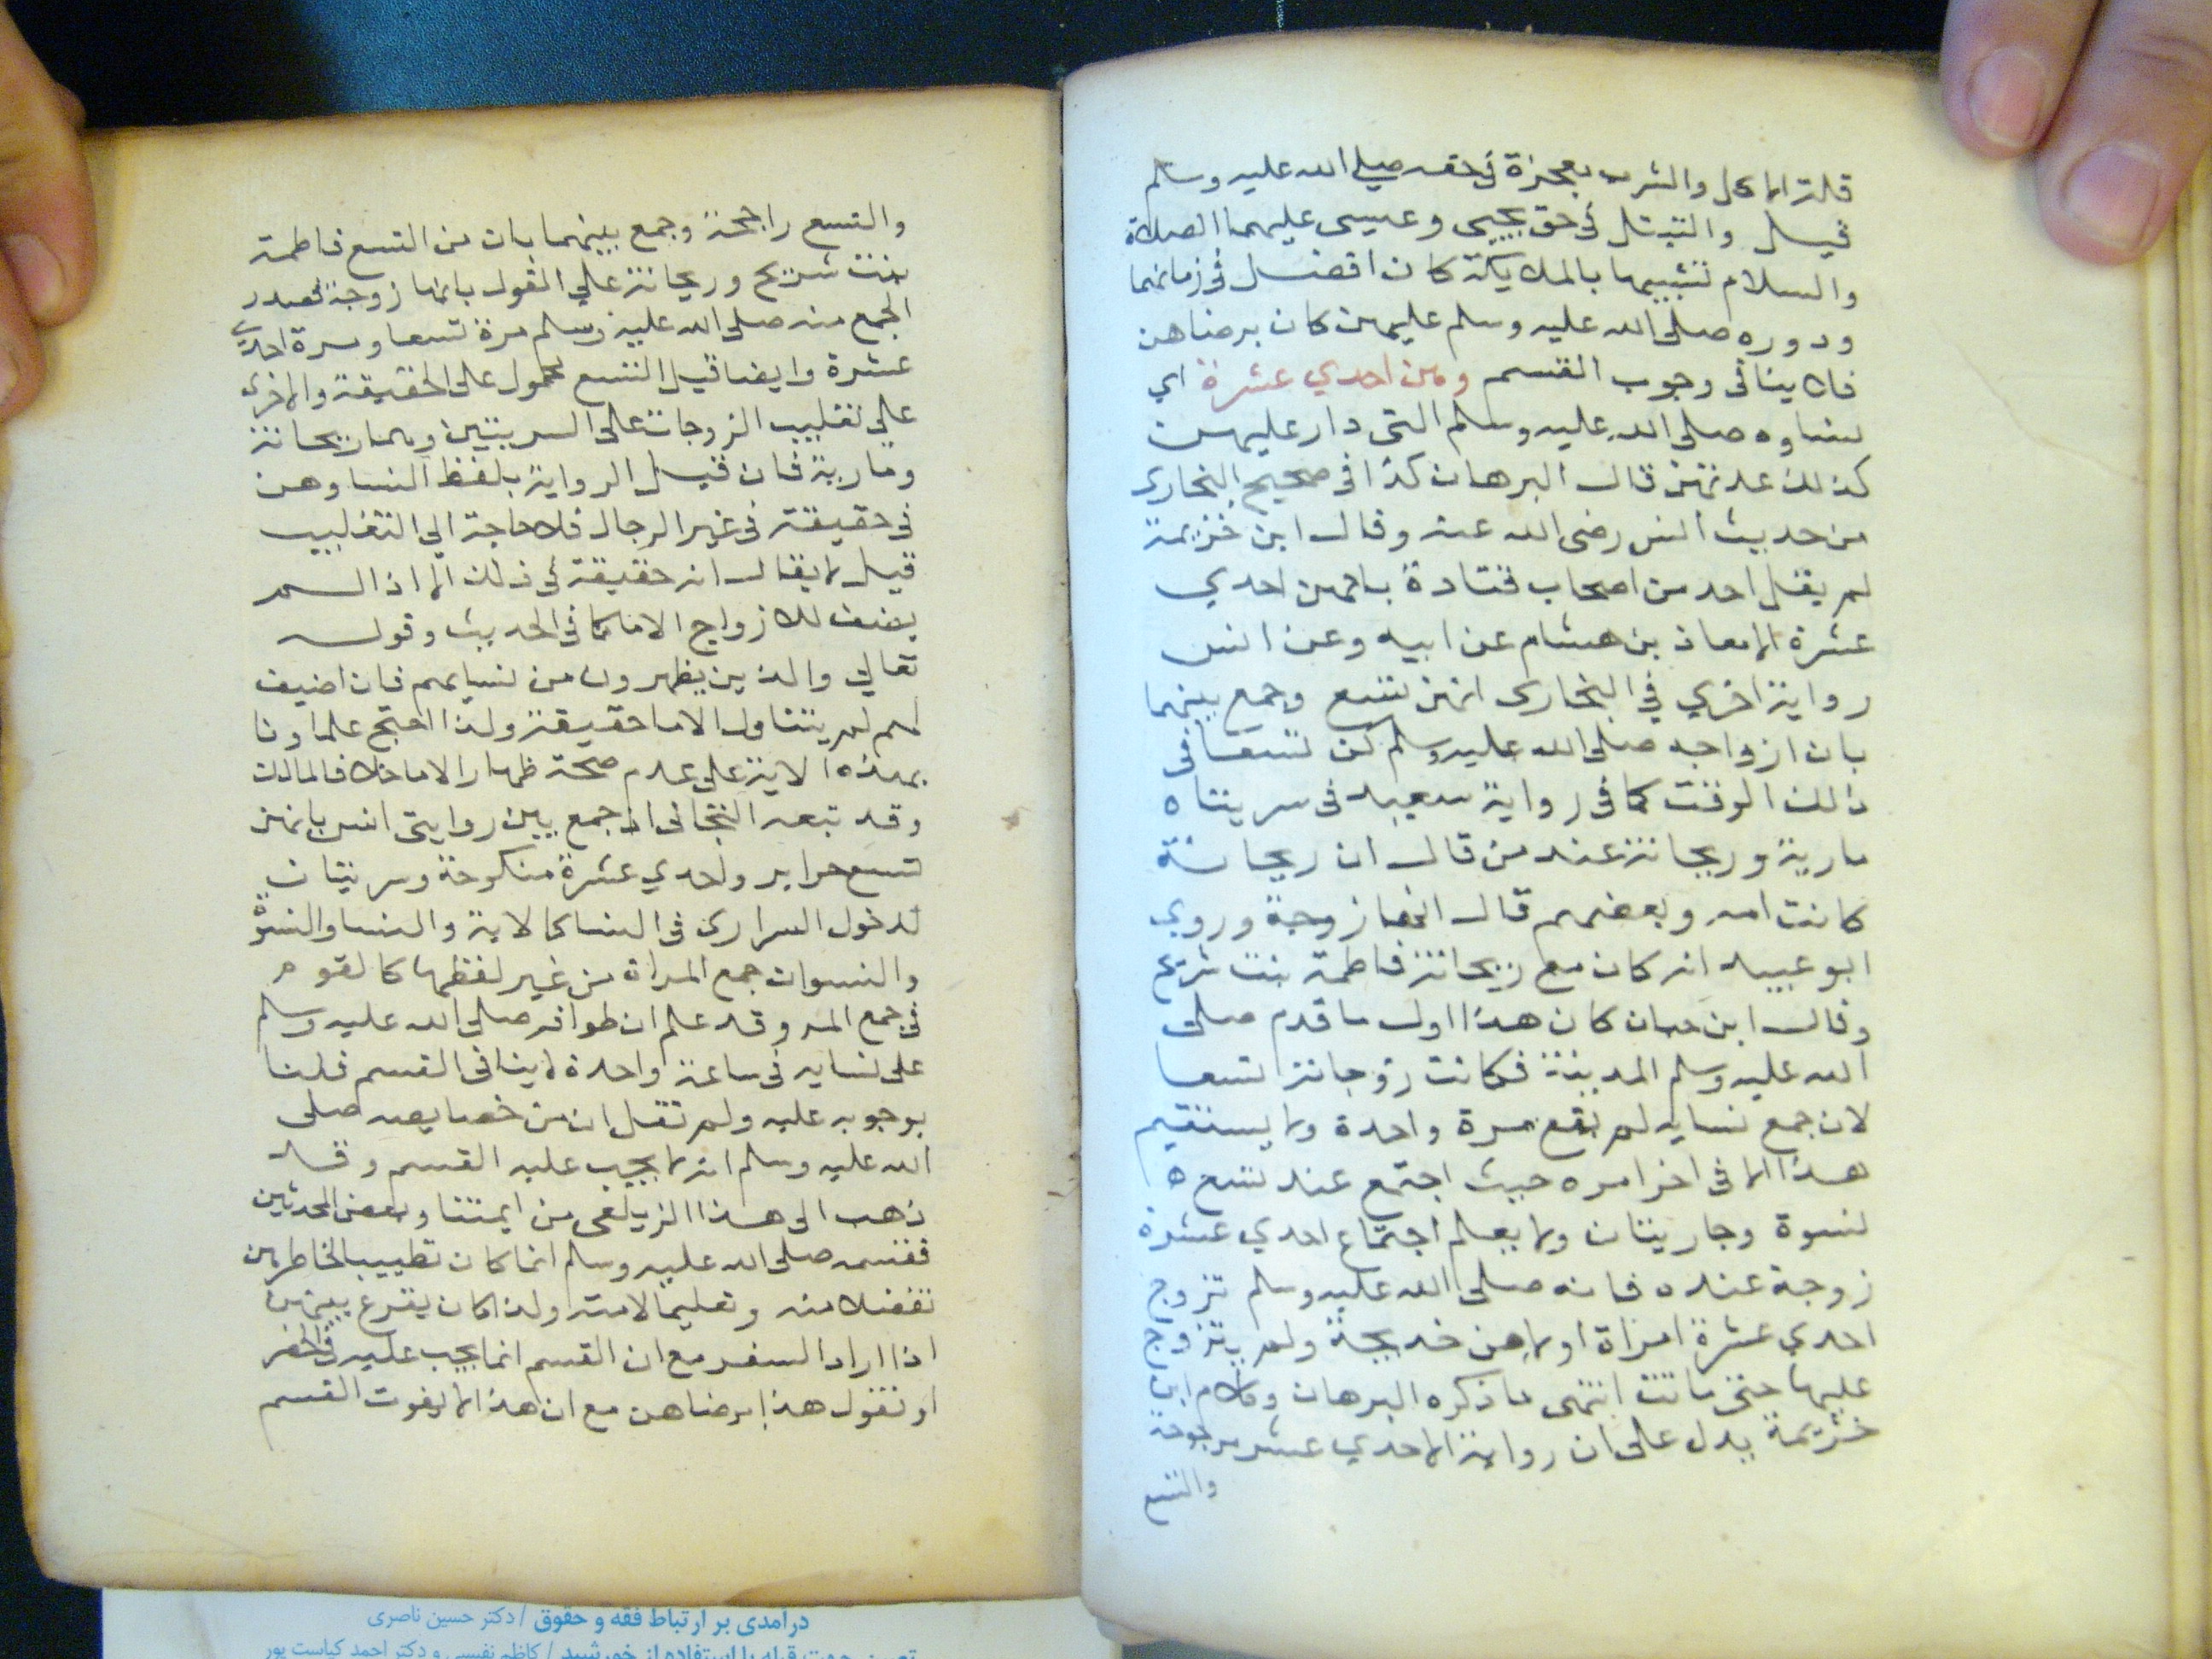 قلة الاكل والشرب معجزة في حقه صلى الله عليه وسلم
قيل والتبتل في حق يحيى وعيسى عليهما الصلاة
والسلام تشبيها بالملايكة كان افضل في زمانهما
ودوره صلى الله عليه وسلم عليهن كان برضاهن
فلا ينافى وجوب القسم وهن احدي عشرة اي
نساوه صلى الله عليه وسلم التى دار عليهن
كذلك عدتهن قال البرهان كذا فى صحيح البخارى
من حديث انس رضى الله عنه وقال ابن خزيمة
لم يقل احد من اصحاب قتادة بانهن احدي
عشرة الا معاذ بن هشام عن ابيه وعن انس
رواية اخري في البخارى انهن تسع وجمع بينهما
بان ازواجه صلى الله عليه وسلم كن تسعا فى
ذلك الوقت كما فى رواية سعيد فى سريتاه
مارية وريحانة عند من قال ان ريحانة
كانت امه وبعضهم قال انها زوجة وروي
ابو عبيد انه كان مع ريحانة فاطمة بنت شريح
وقال ابن حبان كان هذا اول ما قدم صلى
الله عليه وسلم المدينة فكانت زوجاته تسعا
لان جمع نسايه لم يقع مرة واحدة ولا يستقيم
هذا الا فى اخر امره حيث اجتمع عند تسع ه
نسوة وجاريتان ولا يعلم اجتماع احدي عشرة
زوجة عنده فانه صلى الله عليه وسلم تزوج
احدي عشرة امراة اولاهن خديجة ولم يتزوج
عليها حتى ماتت انتهى ما ذكره البرهان وكلام ابن
خزيمة يدل على ان رواية الاحدي عشر مرجوحة
والتسع
والتسع راجحة وجمع بينهما بان من التسع فاطمة
بنت شريح وريحانة علي القول بانها زوجة فصدر
الجمع منه صلى الله عليه وسلم مرة تسعا ومرة احدي
عشرة وايضا قيل التسع محمول على الحقيقة والاخرى
على تغليب الزوجات على السريتين وهما ريحانة
ومارية فان قيل الرواية بلفظ النسا وهن
فى حقيقة فى غير الرجال فلا حاجة الي التغليب
قيل لا يقال انه حقيقة في ذلك الا اذا لم
يضف للازواج الاما كما فى الحديث وقوله
تعالي والذين يظهرون من نسايهم فان اضيف
لهم لم يتناول الاما حقيقة ولذا احتج علماونا
بهذه الاية على عدم صحة ظهار الاما خلافا لمالك
وقد تبعه التجانى اذ جمع بين روايتى انس بانهن
تسع حراير واحدي عشرة منكوحة وسريتان
لدخول السرارى فى النسا كالاية والنسا والنسوة
والنسوان جمع المراة من غير لفظها كالقوم
فى جمع المر وقد علم ان طوافه صلى الله عليه وسلم
على نسايه فى ساعة واحدة لا ينافى القسم قلنا
بوجوبه عليه ولم نقل ان من خصايصه صلى
الله عليه وسلم انه لا يجب عليه القسم وقد
ذهب الى هذا الزيلعى من ايمتنا وبعض المحدثين
فقسمه صلى الله عليه وسلم انما كان تطييبا لخاطرهن
تفضلا منه وتعليما لامته ولذا كان يقرع بينهن
اذا اراد السفر مع ان القسم انما يجب عليه فى الحضر
او نقول هذا برضاهن مع ان هذا لا يفوت القسم
درآمدی بر ارتباط فقه و حقوق / دکتر حسین ناصری
تعیین جهت قبله با استفاده از خورشید / کاظم نفیسی و دکتر احمد کیاست پور